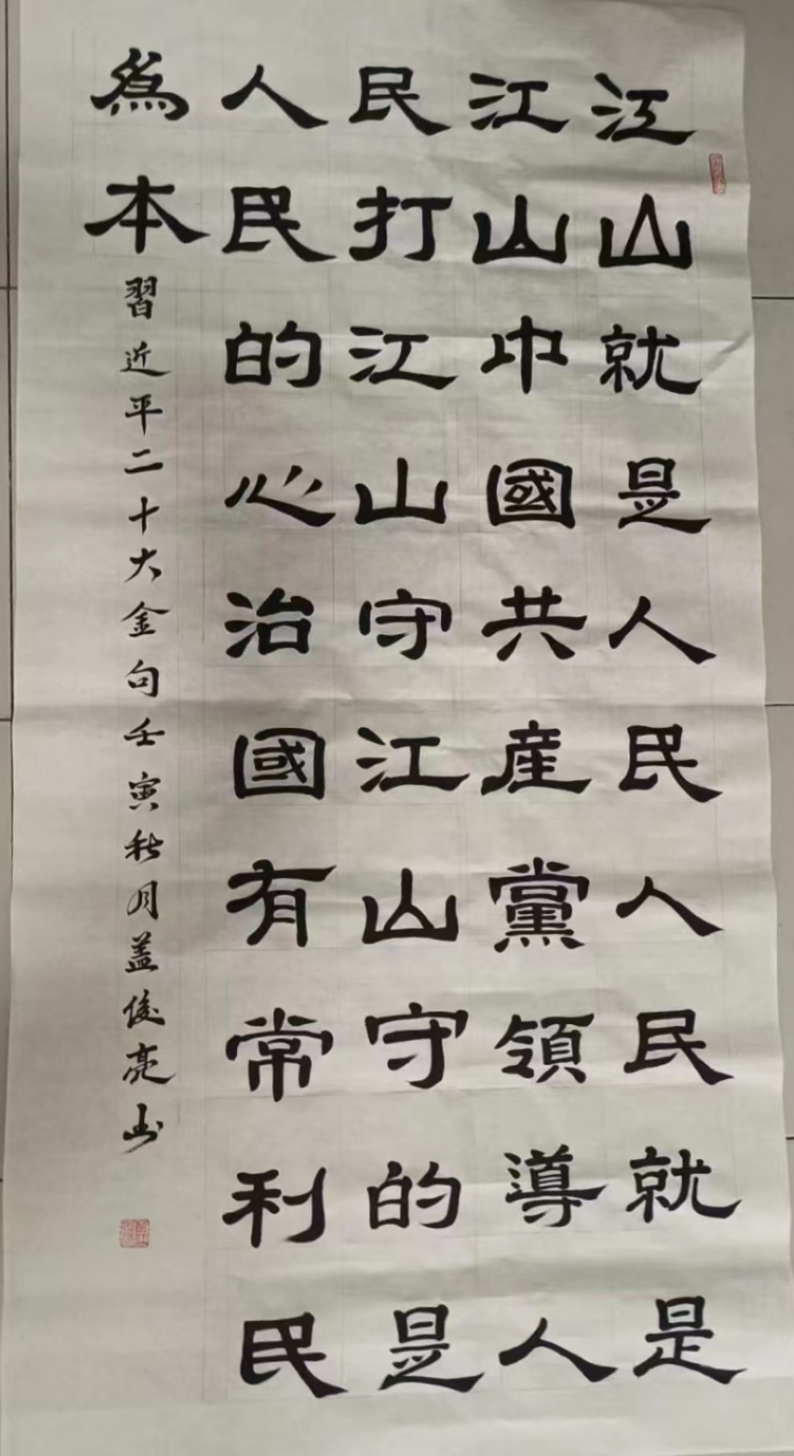 江山就是人民人民就是
江山中國共産黨領導人
民打江山守江山守的是
人民的心治國有常利民
爲本
習近平二十大金句壬寅秋月盖俊亮书